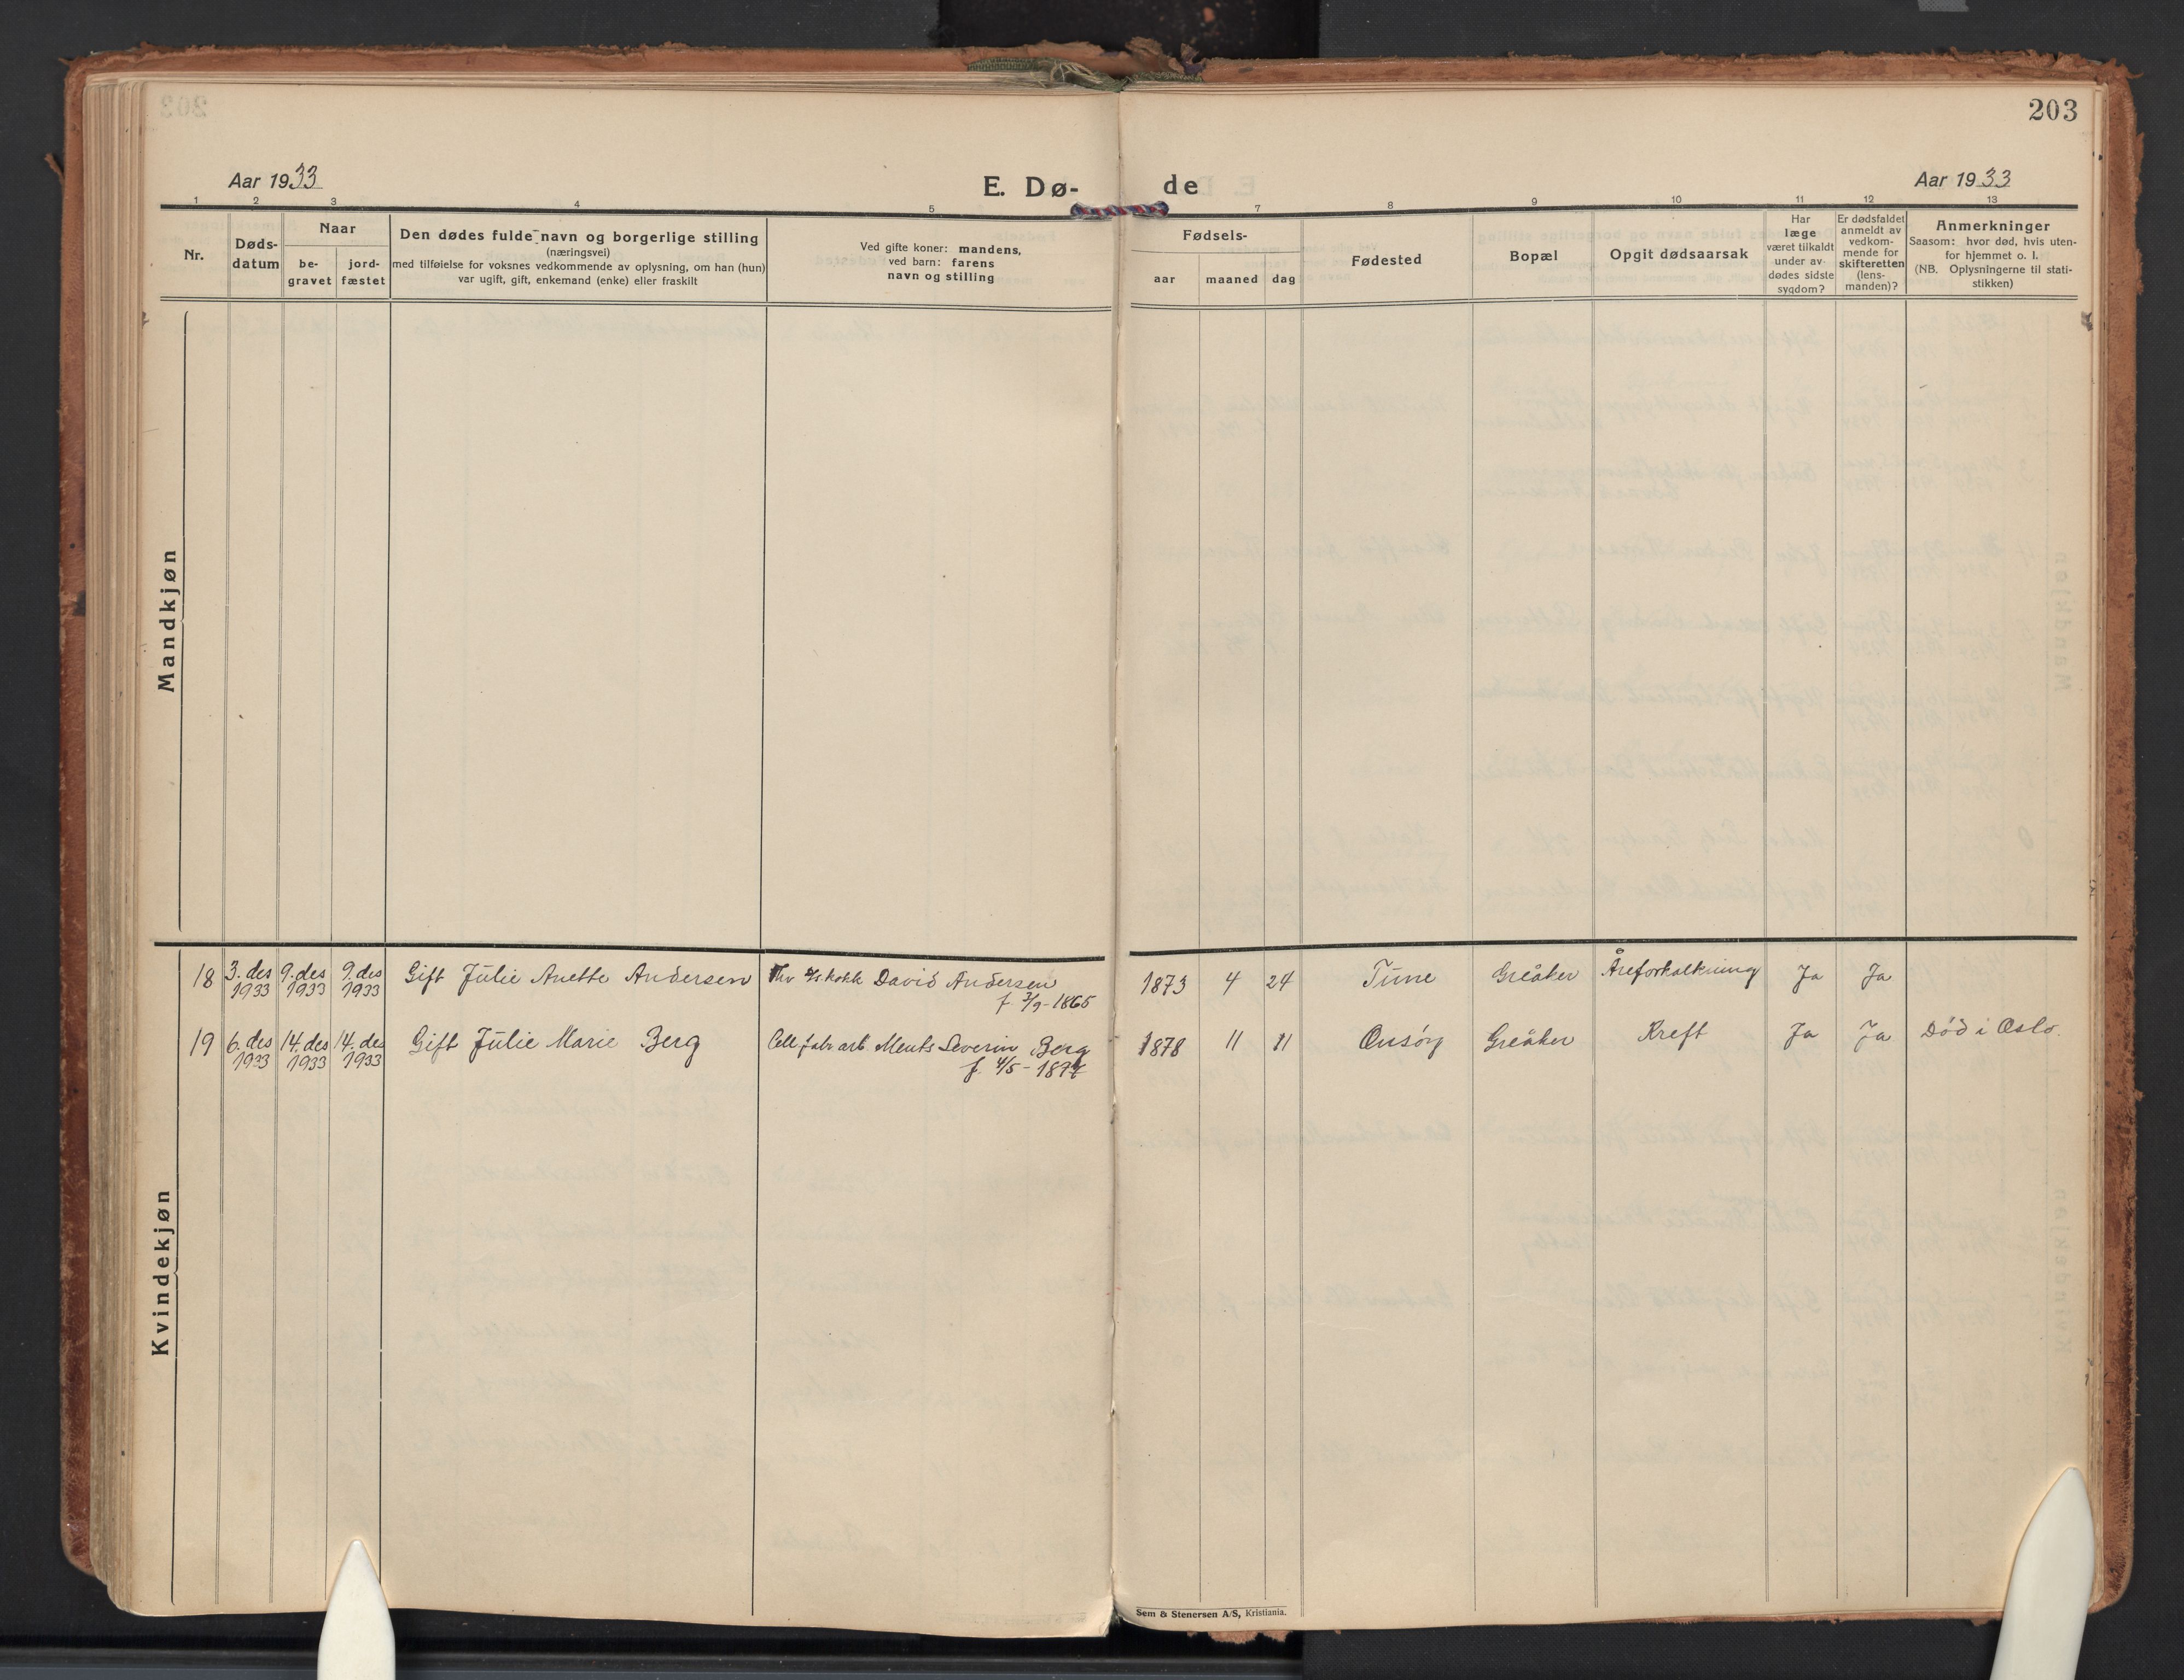 203
Aar 1933
E. Dø-
de
Aar 1933
1 2 3 4 5 7 8 9 10 11 12 13
Nr.
Døds-
datum
Naar
be-
gravet
jord-
fæstet
Den dødes fulde navn og borgerlige stilling
(næringsvei)
med tilføielse for voksnes vedkommende av oplysning, om han (hun)
var ugift, gift, enkemand (enke) eller fraskilt
Ved gifte koner: mandens,
ved barn: farens
navn og stilling
Fødsels-
aar
maaned
dag
Fødested
Bopæl
Opgit dødsaarsak
Har
læge
været tilkaldt
under av-
dødes sidste
sygdom?
Er dødsfaldet
anmeldt av
vedkom-
mende for
skifteretten
(lens-
manden)?
Anmerkninger
Saasom: hvor død, hvis uten-
for hjemmet o. l.
(NB. Oplysningerne til stati-
stikken)
Mandkjøn
18 3. des 9. des 9. des Gift Julie Anette Andersen David Andersen 1873 4 24 Tune Greåker Åreforkalkning Ja Ja
1933 1933 1933 f. 3/9-1865
19 6. des 14. des 14. des Gift Julie Marie Berg Cell. fabr arb. Ments Severin Berg 1878 11 11 Onsøy Greåker Kreft Ja Ja Død i Oslo.
1933 1933 1933 f. 4/5-
Kvindekjøn
Sem & Stenersen A/S, Kristiania.